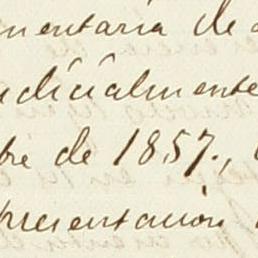 mentaria de
udicialmente
bre de 1857.,
presentación